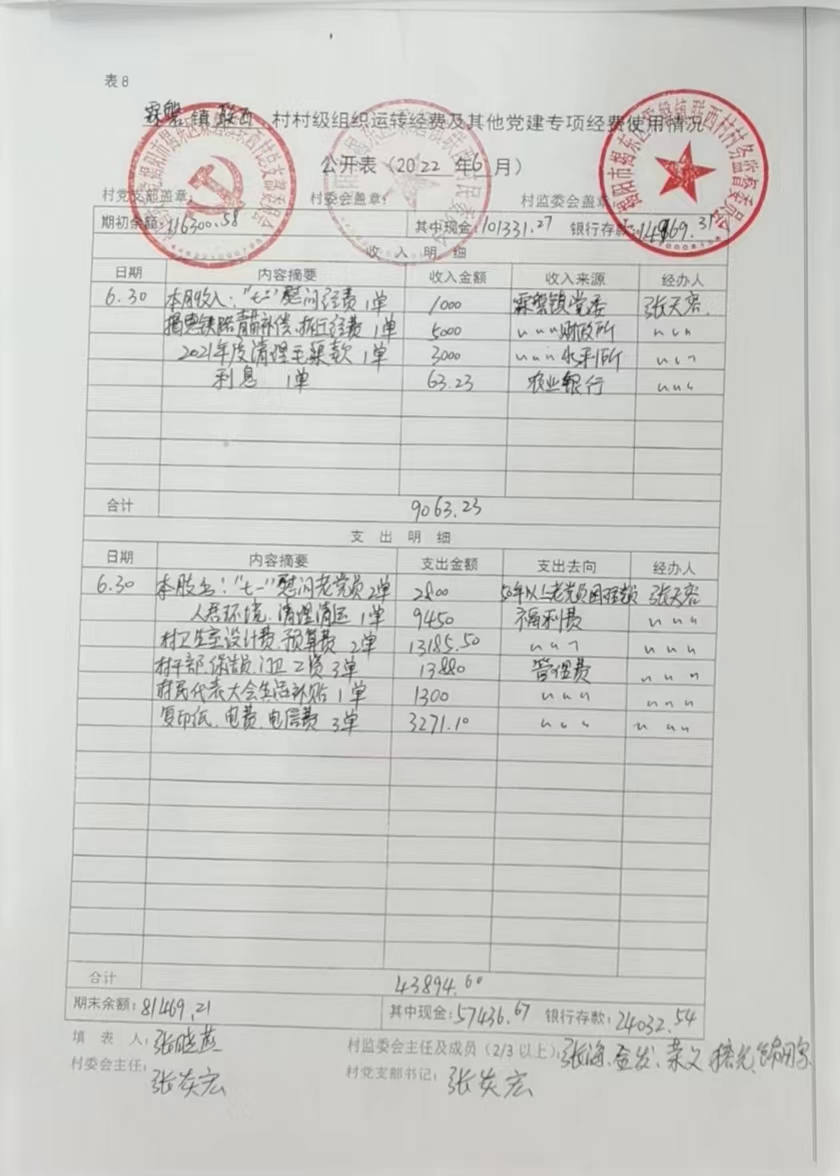 表8
霖磐镇 联西 村村级组织运转经费及其他党建专项经费使用情况
公开表（2022 年6 月）
村党支部盖章： 村委会盖章： 村监委会盖章：
期初余额：116300.58 其中现金：101331.27 银行存款：14969.31
收 入 明 细
日期 内容摘要 收入金额 收入来源 经办人
6.30 本月收入："七一"慰问经费 1单 1000 霖磐镇党委
揭惠铁路青苗补偿、拆迁经费 1单 5000 〃〃〃财政所 〃〃〃
2021年度清理毛渠款 1单 3000 〃〃〃水利所 〃〃〃
利息 1单 63.23 农业银行 〃〃〃
合计 9063.23
支 出 明 细
日期 内容摘要 支出金额 支出去向 经办人
6.30 本月支："七一"慰问老党员 2单 2800 50年以上老党员困难
人居环境、清理清运 1单 9450 福利费 〃〃〃
村卫生室设计费、预算费 2单 13185.50 〃〃〃 〃〃〃
村干部、保洁员、门卫工资 3单 13880 管理费 〃〃〃
村民代表大会生活补贴 1单 1300 〃〃〃 〃〃〃
复印纸、电费、电信费 3单 3271.10 〃〃〃 〃〃〃
合计 43894.60
期末余额：81469.21 其中现金：57436.67 银行存款：24032.54
填 表 人：张晓燕 村监委会主任及成员（2/3 以上）：张海、金发、荣义
村委会主任：张炎宏 村党支部书记：张炎宏